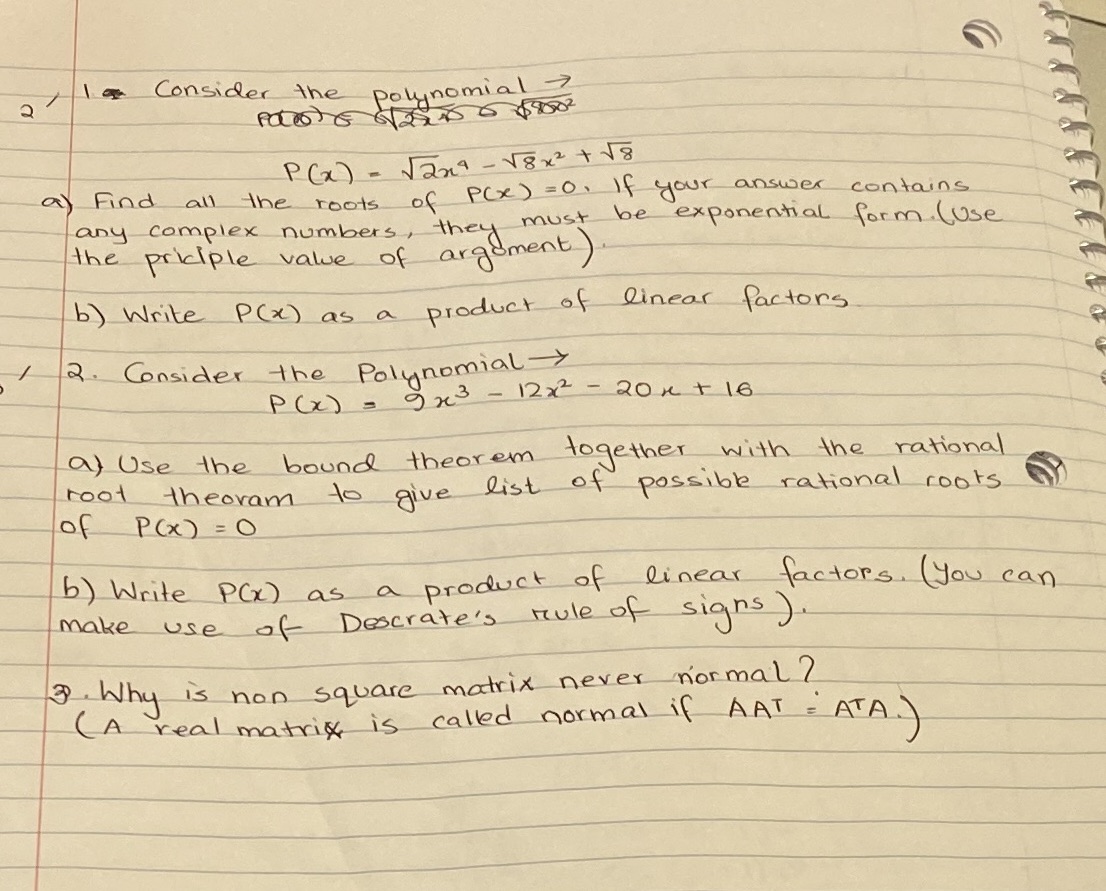 2/ 1. Consider the polynomial →
P(x) = √2x⁴ - √8x² + √8
a) Find all the roots of P(x) = 0. If your answer contains
any complex numbers, they must be exponential form. (Use
the priciple value of argoment).
b) Write P(x) as a product of linear factors
/ 2. Consider the Polynomial →
P(x) = 9x³ - 12x² - 20x + 16
a) Use the bound theorem together with the rational
root theoram to give list of possible rational roots
of P(x) = 0
b) Write P(x) as a product of linear factors. (You can
make use of Descrate's rule of signs).
3. Why is non square matrix never normal?
(A real matrix is called normal if AAᵀ = AᵀA.)